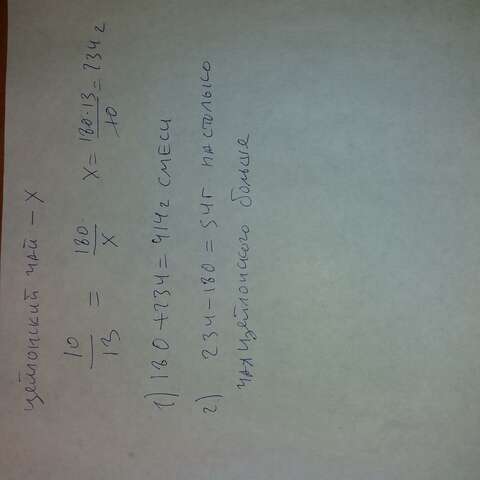 цейлонский чай – X
10/13 = 180/X X = 180·13/10 = 234 г
1) 180 + 234 = 414 г СМЕСИ
2) 234 – 180 = 54 г НАСТОЛЬКО
ЧАЯ цейлонского больше